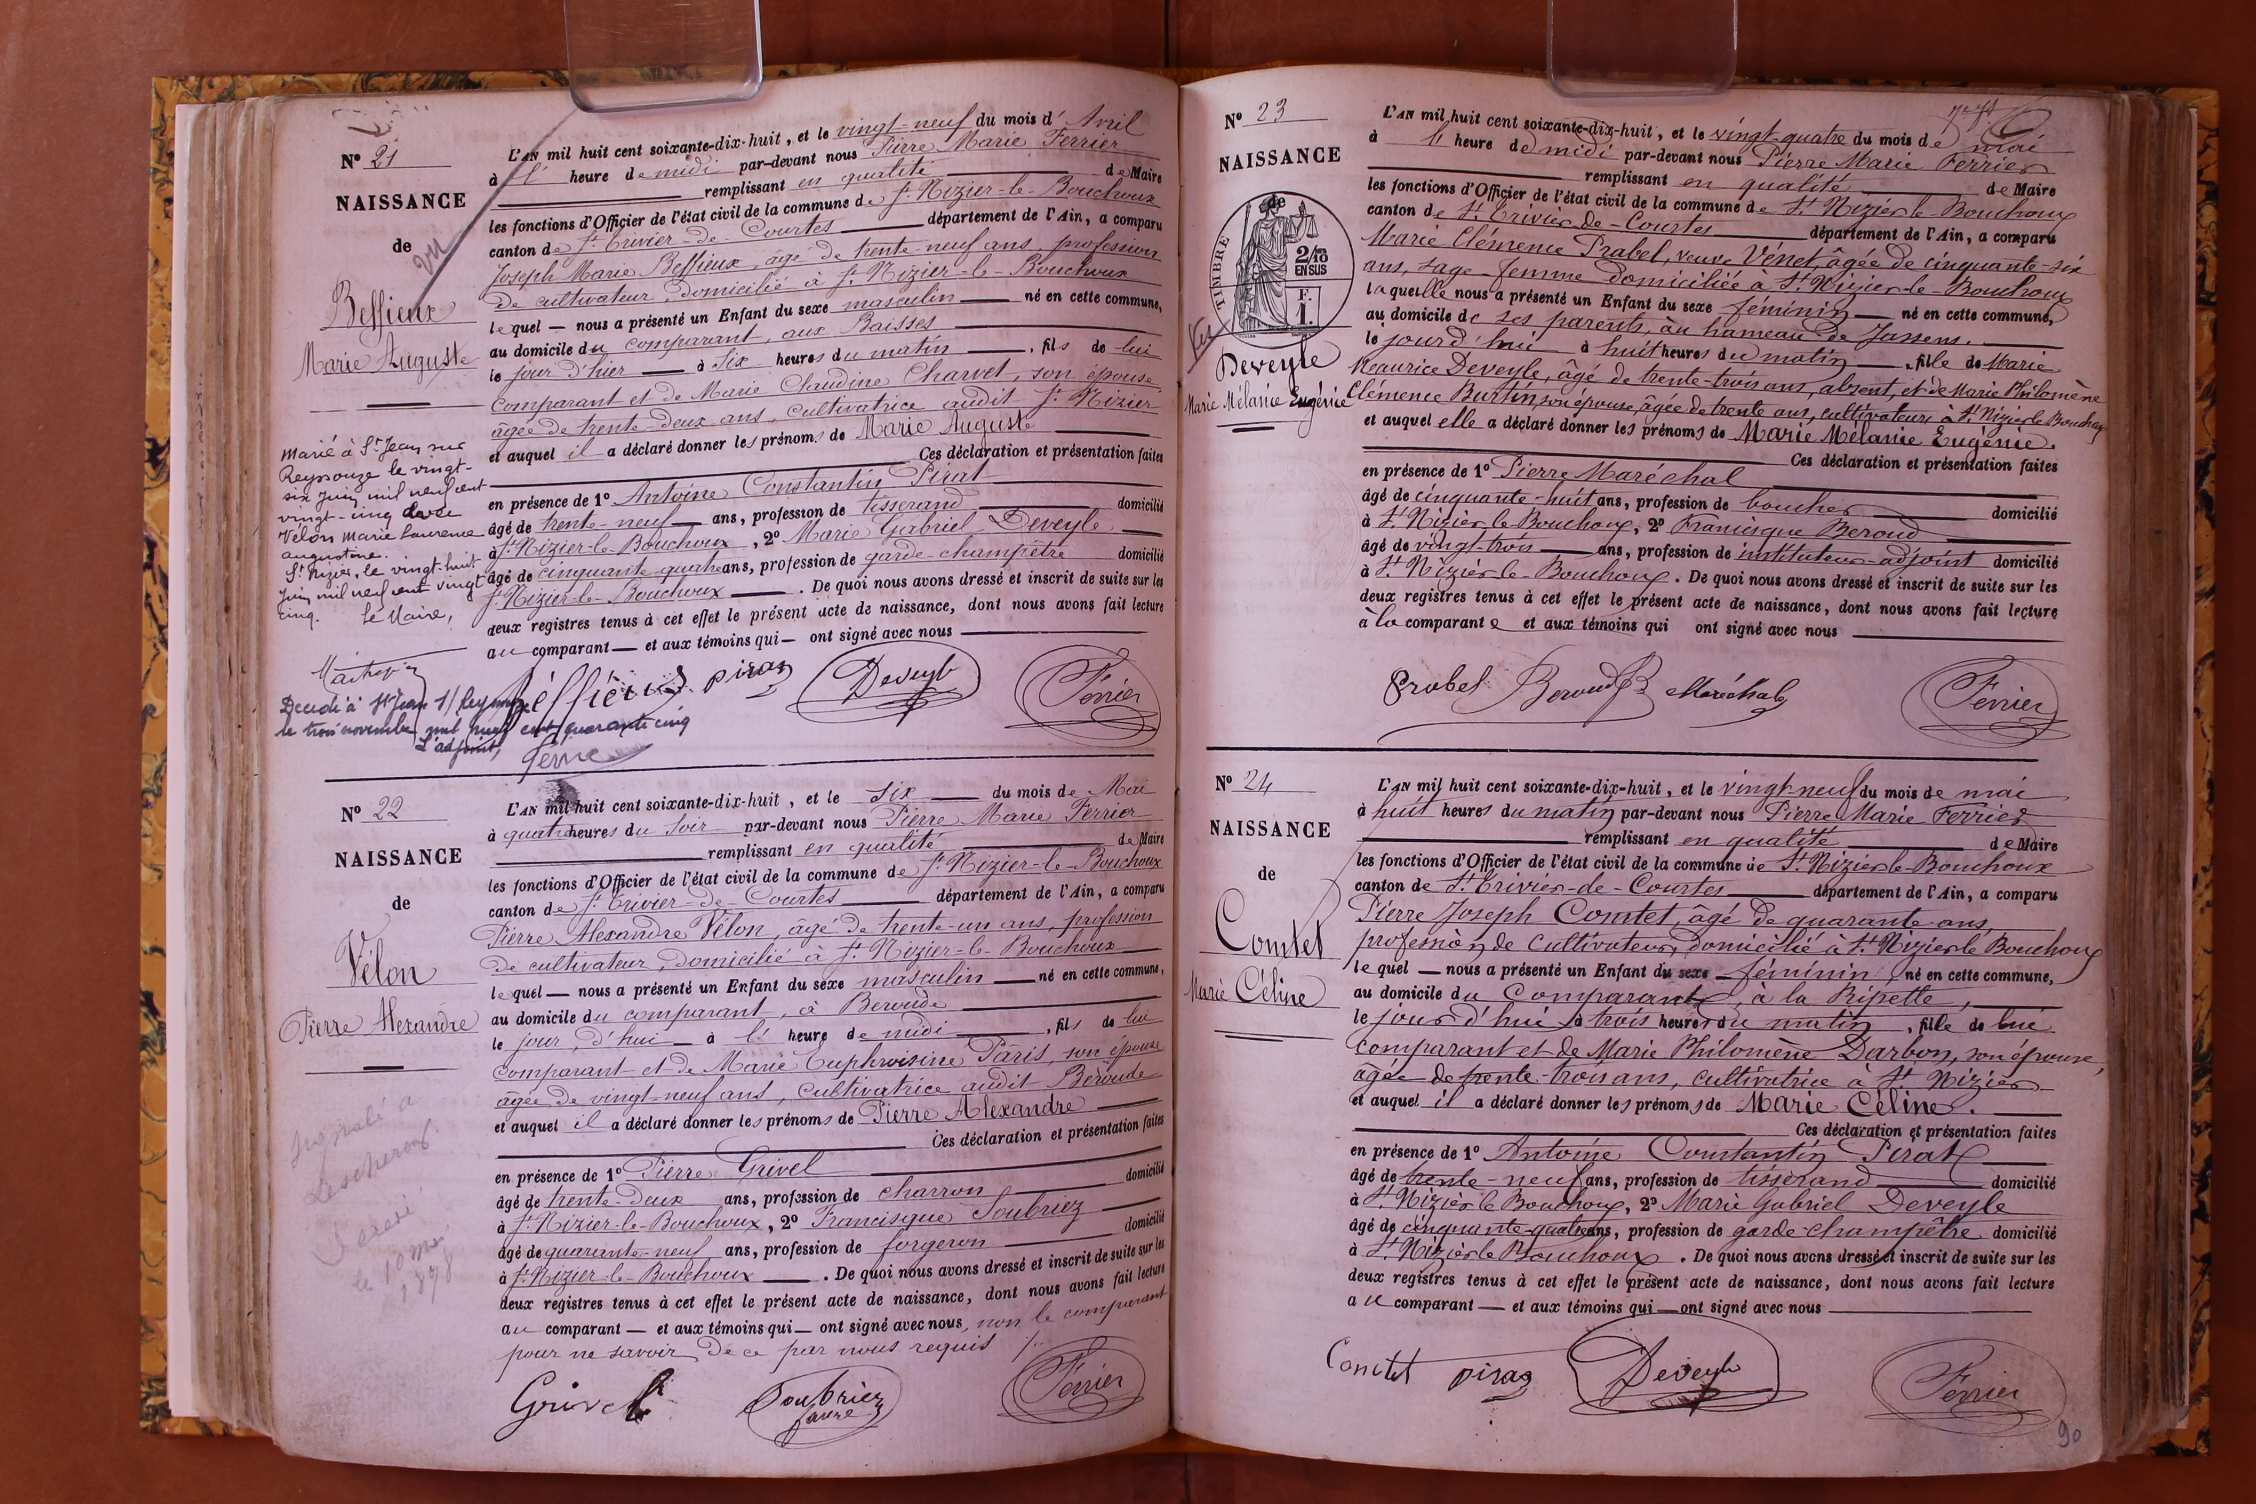 Nº 21
NAISSANCE
de
vu
Beffieux
Marie Auguste
L'AN mil huit cent soixante-dix-huit, et le vingt-neuf du mois d'Avril
à l' heure de midi par-devant nous Pierre Marie Ferrier
remplissant en qualité de Maire
les fonctions d'Officier de l'état civil de la commune de St Nizier-le-Bouchoux
canton de St Trivier-de-Courtes département de l'Ain, a comparu
Joseph Marie Beffieux, âgé de trente-neuf ans, profession
de cultivateur, domicilié à St Nizier-le-Bouchoux
lequel — nous a présenté un Enfant du sexe masculin — né en cette commune,
au domicile du comparant, aux Baisses
le jour d'hier — à six heures du matin —, fils de lui
comparant et de Marie Claudine Charvet, son épouse,
âgée de trente-deux ans, cultivatrice audit St Nizier
et auquel il a déclaré donner les prénoms de Marie Auguste
Ces déclaration et présentation faites
en présence de 1º Antoine Constantin Pirat
âgé de trente-neuf ans, profession de tisserand domicilié
à St Nizier-le-Bouchoux, 2º Marie Gabriel Deveyle
âgé de cinquante-quatre ans, profession de garde-champêtre domicilié
St Nizier-le-Bouchoux — . De quoi nous avons dressé et inscrit de suite sur les
deux registres tenus à cet effet le présent acte de naissance, dont nous avons fait lecture
au comparant — et aux témoins qui — ont signé avec nous
Marié à St Jean sur
Reyssouze le vingt-
six Juin mil neuf cent
vingt-cinq avec
Vélon Marie Laurence
Augustine.
St Nizier, le vingt-huit
Juin mil neuf cent vingt
cinq. Le Maire,
Beffieux pirat Deveyle Ferrier
Décédé à St Jean s/ Reyssouze
le trois novembre mil neuf cent quarante cinq
L'adjoint,
Nº 22
NAISSANCE
de
Vélon
Pierre Alexandre
L'AN mil huit cent soixante-dix-huit, et le six du mois de Mai
à quatre heures du soir par-devant nous Pierre Marie Ferrier
remplissant en qualité de Maire
les fonctions d'Officier de l'état civil de la commune de St Nizier-le-Bouchoux
canton de St Trivier-de-Courtes département de l'Ain, a comparu
Pierre Alexandre Vélon, âgé de trente-un ans, profession
de cultivateur, domicilié à St Nizier-le-Bouchoux
lequel — nous a présenté un Enfant du sexe masculin — né en cette commune,
au domicile du comparant, à Beroude
le jour d'hui — à l' heure de midi —, fils de lui
comparant et de Marie Euphroisine Pâris, son épouse
âgée de vingt-neuf ans, cultivatrice audit Béroude
et auquel il a déclaré donner les prénoms de Pierre Alexandre
Ces déclaration et présentation faites
en présence de 1º Pierre Grivel
âgé de trente-deux ans, profession de charron domicilié
à St Nizier-le-Bouchoux, 2º Francisque Soubriez
âgé de quarante-neuf ans, profession de forgeron domicilié
à St Nizier-le-Bouchoux — . De quoi nous avons dressé et inscrit de suite sur les
deux registres tenus à cet effet le présent acte de naissance, dont nous avons fait lecture
au comparant — et aux témoins qui — ont signé avec nous, non le comparant
pour ne savoir de ce par nous requis
Lescheroux
le 10 mai
1898
Grivel Soubriez Ferrier
Nº 23
NAISSANCE
de
TIMBRE
2/10
EN SUS
F.
1.
Vu
Deveyle
Marie Mélanie Eugénie
L'AN mil huit cent soixante-dix-huit, et le vingt-quatre du mois de mai
à l' heure de midi par-devant nous Pierre Marie Ferrier
remplissant en qualité de Maire
les fonctions d'Officier de l'état civil de la commune de St Nizier le Bouchoux
canton de St Trivier-de-Courtes département de l'Ain, a comparu
Marie Clémence Prabel, veuve Vénet, âgée de cinquante-six
ans, sage-femme domiciliée à St Nizier-le-Bouchoux
laquelle nous a présenté un Enfant du sexe féminin — né en cette commune,
au domicile de ses parents, au hameau de Jassens.
le jour d'hui à huit heures du matin —, fille de Marie
Maurice Deveyle, âgé de trente-trois ans, absent, et de Marie Philomène
Clémence Burtin, son épouse, âgée de trente ans, cultivateurs à St Nizier le Bouchoux
et auquel elle a déclaré donner les prénoms de Marie Mélanie Eugénie.
Ces déclaration et présentation faites
en présence de 1º Pierre Maréchal
âgé de cinquante-huit ans, profession de boucher domicilié
à St Nizier le Bouchoux, 2º Francisque Beroud
âgé de vingt-trois — ans, profession de instituteur-adjoint domicilié
à St Nizier-le-Bouchoux. De quoi nous avons dressé et inscrit de suite sur les
deux registres tenus à cet effet le présent acte de naissance, dont nous avons fait lecture
à la comparante et aux témoins qui ont signé avec nous
Prabel Beroud Maréchal Ferrier
Nº 24
NAISSANCE
de
Comtet
Marie Céline
L'AN mil huit cent soixante-dix-huit, et le vingt-neuf du mois de mai
à huit heures du matin par-devant nous Pierre Marie Ferrier
remplissant en qualité de Maire
les fonctions d'Officier de l'état civil de la commune de St Nizier le Bouchoux
canton de St Trivier-de-Courtes département de l'Ain, a comparu
Pierre Joseph Comtet, âgé de quarante ans,
profession de cultivateur, domicilié à St Nizier le Bouchoux
lequel — nous a présenté un Enfant du sexe féminin né en cette commune,
au domicile du comparant, à la Ripette,
le jour d'hui à trois heures du matin, fille de lui
comparant et de Marie Philomène Darbon, son épouse,
âgée de trente-trois ans, cultivatrice à St Nizier
et auquel il a déclaré donner les prénoms de Marie Céline.
Ces déclaration et présentation faites
en présence de 1º Antoine Constantin Pirat
âgé de trente-neuf ans, profession de tisserand domicilié
à St Nizier le Bouchoux, 2º Marie Gabriel Deveyle
âgé de cinquante-quatre ans, profession de garde-champêtre domicilié
à St Nizier le Bouchoux. De quoi nous avons dressé et inscrit de suite sur les
deux registres tenus à cet effet le présent acte de naissance, dont nous avons fait lecture
au comparant — et aux témoins qui — ont signé avec nous
Comtet piraz Deveyle Ferrier
90